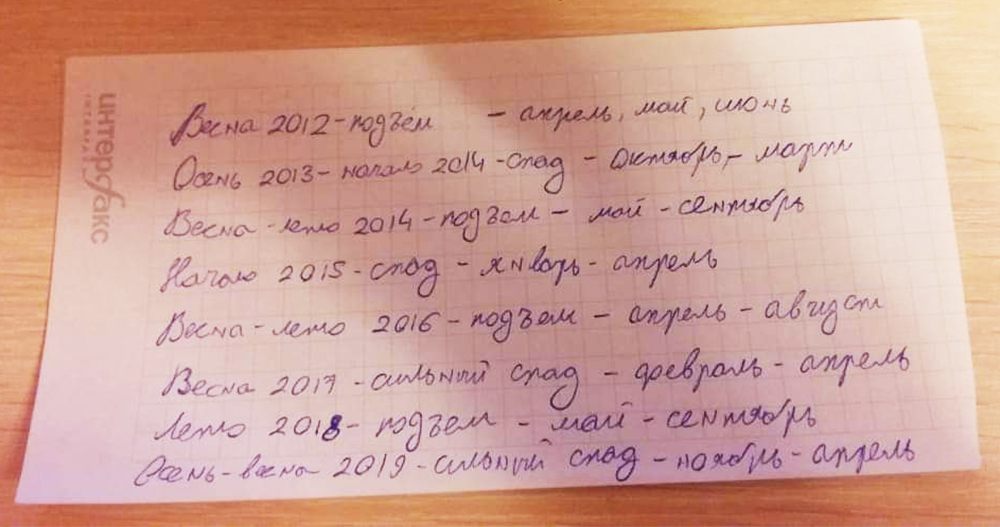 интерфакс
Весна 2012-подъём - апрель, май, июнь
Осень 2013-начало 2014-спад - октябрь,- март
Весна-лето 2014-подъем - май-сентябрь
Начало 2015-спад - январь- апрель
Весна-лето 2016-подъем - апрель-август
Весна 2017-сильный спад - февраль- апрель
Лето 2018- подъем - май-сентябрь
Осень-весна 2019-сильный спад -ноябрь- апрель